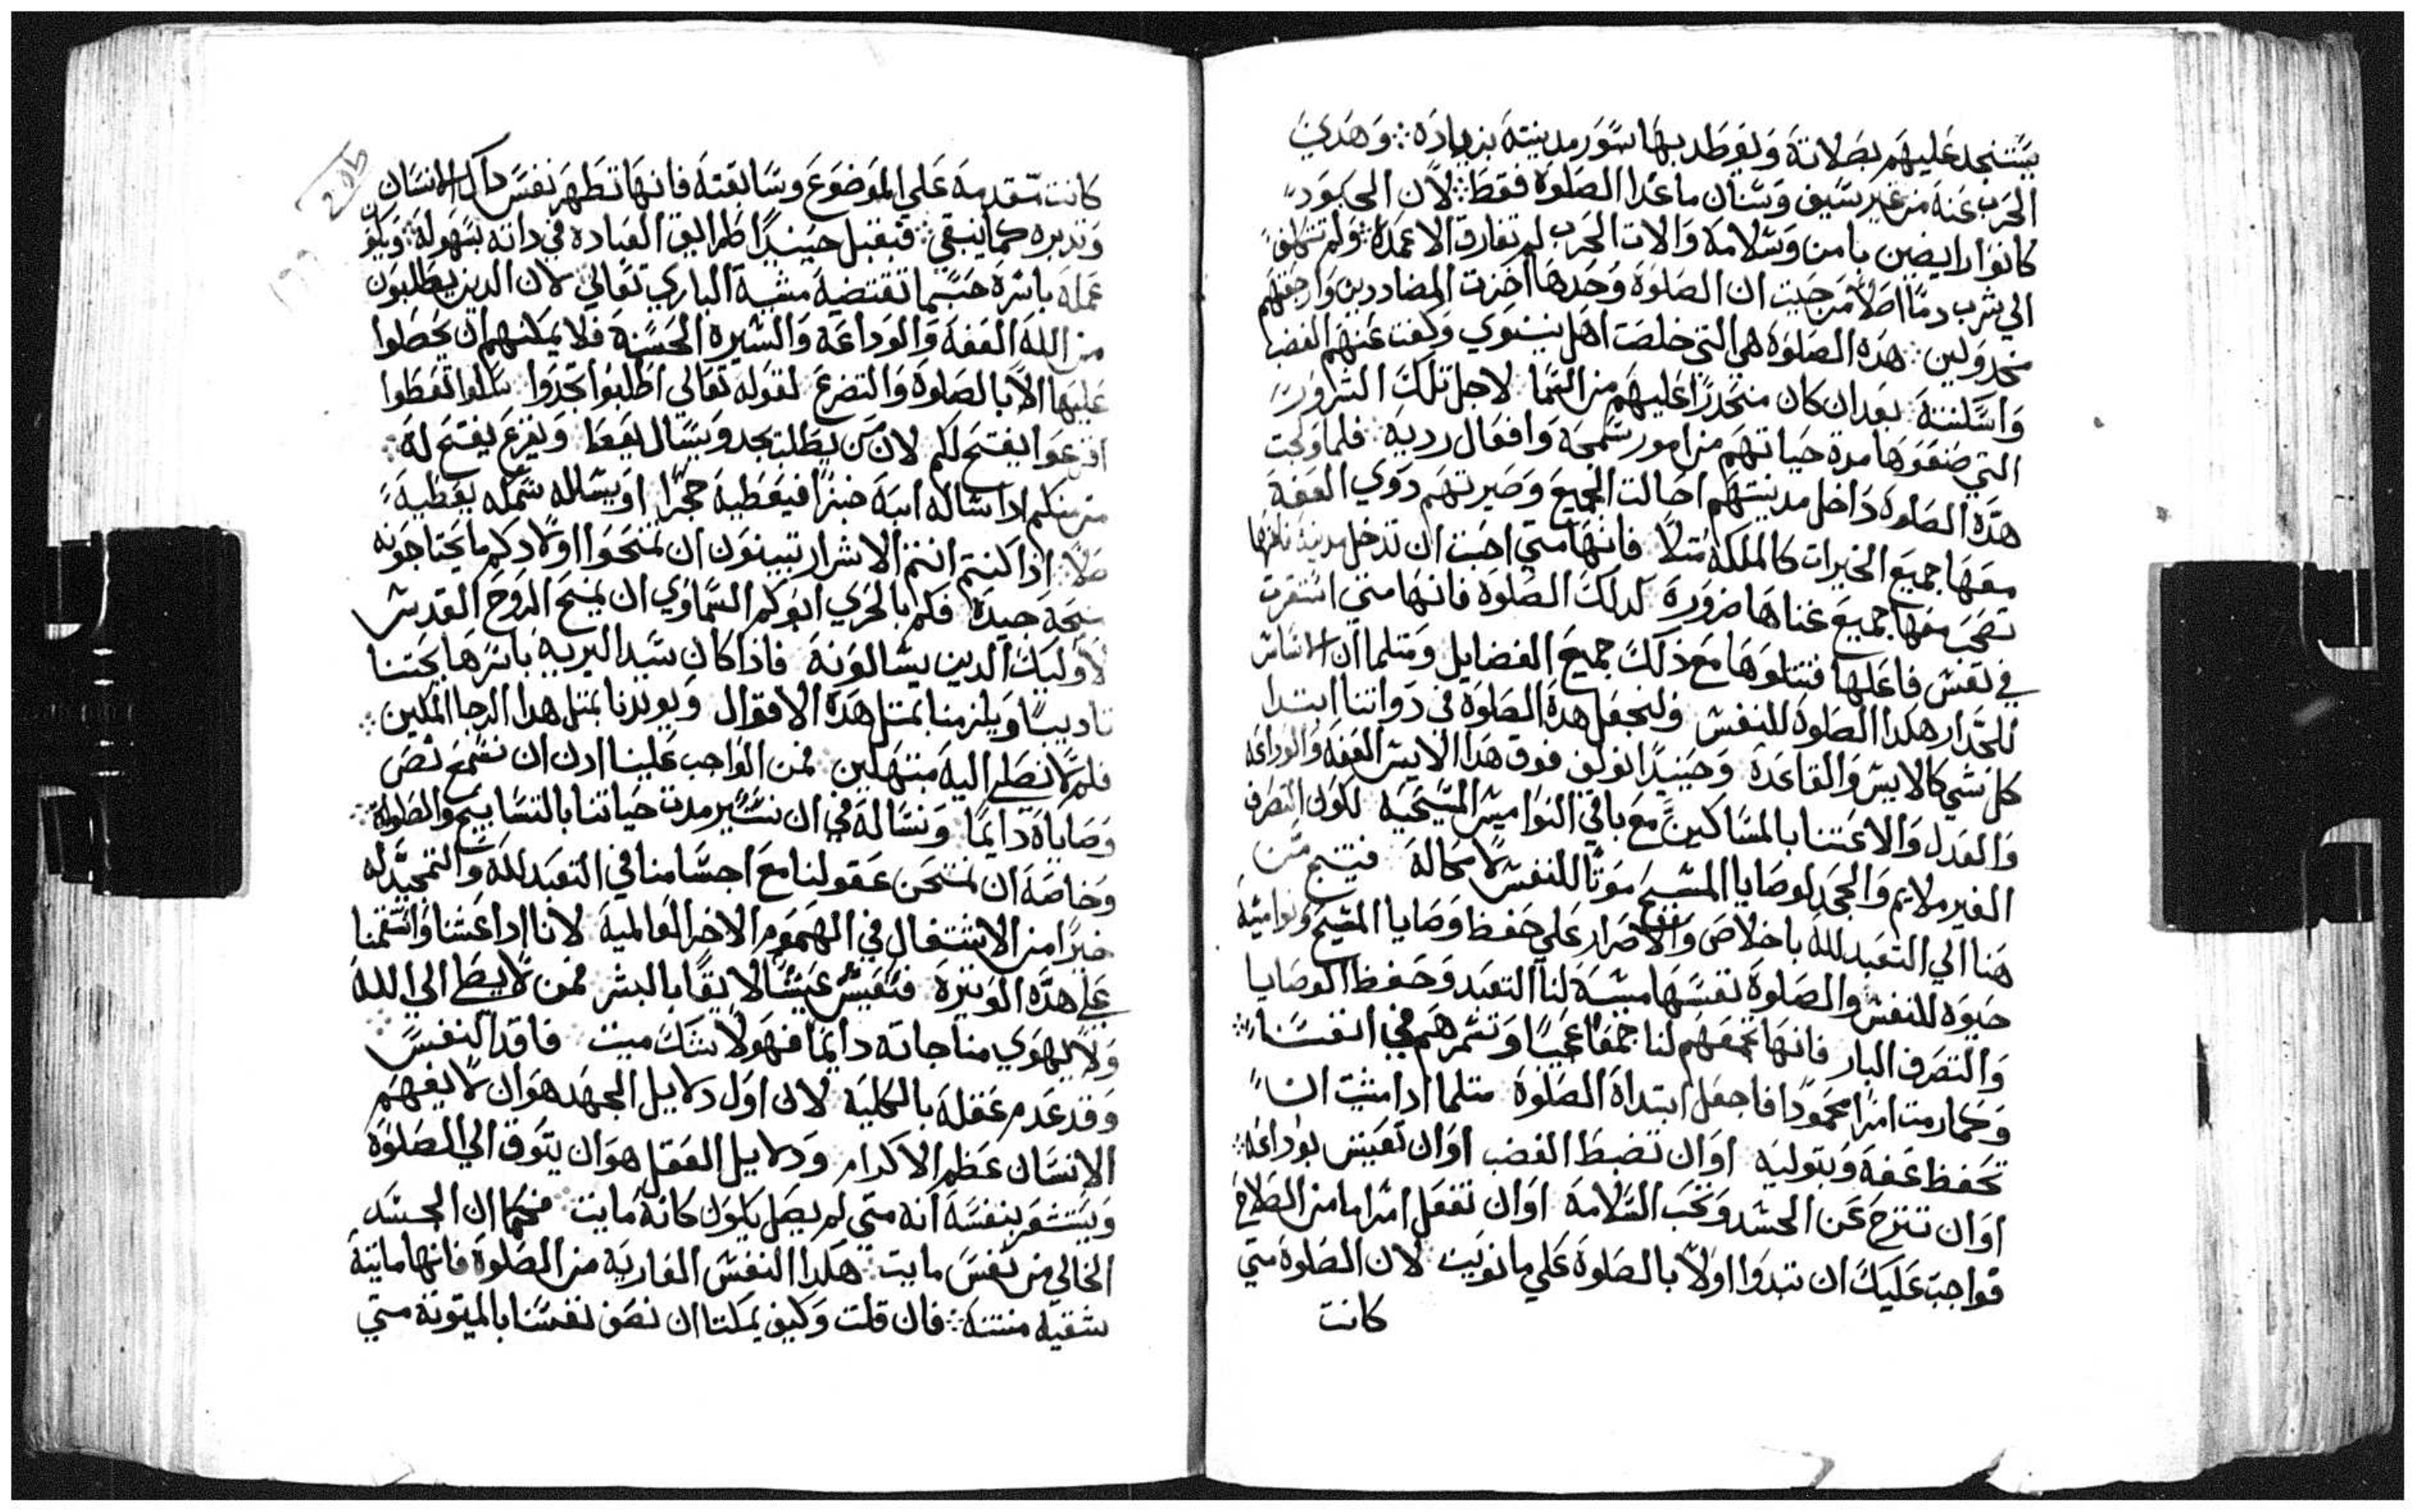 يستنجد عليهم بصلاته ويوطد بها سور مدينته بزياده ۞ وهدي
الحرب عنه من غير سيف وسنان ما عدا الصلوة فقط ۞ لان الجنود
كانوا رابضين بامن وسلامة والات الحرب لم تفارق الاغمدة ولم
الي شرب دمًا اصلًا من حيت ان الصلوة وحدها اخزت المضاددين وارجعتهم
مخدولين ۞ هده الصلوة هي التي خلصت اهل نينوي وكفت عنهم الغضب
واسكنته بعد ان كان منحدرًا عليهم من السما لاجل تلك الشرور
التي صنعوها مدة حياتهم من امور سمجة وافعال رديه ۞ فلما ولجت
هده الصلوة داخل مدينتهم احالت الجميع وصيرتهم دوي العفة
معها جميع الخيرات كالملكه مثلًا فانها متي احبت ان تدخل مدينة ما فانها
تصحب معها جميع غناها ضرورة لدلك الصلوة فانها متي استقرت
في نفس فاعلها فتتلوها مع دلك جميع الفضايل ومتلما ان الاساس
للجدار هكدا الصلوة للنفس ولنجعل هدة الصلوة في دواتنا ابتدا
كل شي كالايس والقاعدة وحينيدًا نولف فوق هدا الايس العفة والوداعه
والعدل والاعتنا بالمساكين مع باقي النواميس المسيحيه لكون التصرف
الغير ملايم والجحد لوصايا المسيح موتًا للنفس لا محالة فينتج من
هنا الي التعبد لله باخلاص والاصرار علي حفظ وصايا المسيح ونواميسه
حيوه للنفس والصلوة نفسها مسببة لنا التعبد وحفظ الوصايا
والتصرف البار فانها تجمعهم لنا جمعًا عجيبًا وتتمرهم في انفسنا ۞
وكما رمت امرًا محمودًا فاجعل ابتداة الصلوة متلما ادا شيت ان
تحفظ عفة وبتوليه او ان تضبط الغضب او ان تعيش بوداعه ۞
او ان تنتزح عن الحسد وتحب السلامة او ان تفعل امرًا ما من الصلاح
فواجب عليك ان تبدوا اولًا بالصلوة علي ما نويت لان الصلوة متي
كانت
206
كانت متقدمة علي الموضوع وسابقته فانها تطهر نفس داك الانسان
وتدبره كما ينبغي ۞ فيقبل حينيدًا طرايق العبادة في داته بسهولة ۞ ويكون
عمله باسرة حسبما تقتضيه مشية الباري تعالي لان الدين يطلبون
من الله العفة والوداعة والسيره الحسنه فلا يمكنهم ان يحظوا
عليها الا بالصلوة والتضرع لقوله تعالي اطلبوا تجدوا سلوا تعطوا
اقرعوا يفتح لكم لان من يطلب يجد ويسال يعطا ويقرع يفتح له ۞
من منكم ادا ساله ابنه خبزًا فيعطيه حجرًا او يسلله سمكه يعطيه
صلًا ۞ ادا كنتم انتم الاشرار تبينون ان تمنحوا اولادكم ما يحتاجونه
منحة جيدة فكم بالحري ابوكم السماوي ان يمنح الروح القدس
لاوليك الدين يسالونه فادا كان سيد البريه باسرها يحتنا
تاديبًا ويلزمنا بمتل هده الاقوال ويويدنا بمتل هدا الرجا المكين ۞
فلم لا نصلي اليه مبتهلين فمن الواجب علينا ادن ان نسمع نص
وصاياة دايمًا ونساله في ان نسير مدت حياتنا بالتسابيح والصلواة ۞
وخاصة ان نمتحن عقولنا مع اجسامنا في التعبد لله والتمجيد له
خيرًا من الاشتغال في الهموم الاخر العالمية لاننا ادا عشنا
علي هده الوتيرة فنعيش عيشًا لايقًا بالبشر فمن لا يصلي الي الله
ولا يهوي مناجاته دايمًا فهو لا شك ميت ۞ فاقد النفس
وقد عدم عقله بالكلية لان اول دلايل الجهد هو ان لا يفهم
الانسان عظم الاكرام ودلايل العقل هو ان يتوق الي الصلوة
ويستشعر بنفسه انه متي لم يصل يكون كانه مايت ۞ فكما ان الجسد
الخالي من نفس مايت ۞ هكدا النفس العارية من الصلوة فانها مايتة
شقيه منتنه ۞ فان قلت وكيف يمكننا ان نصف نفسنا بالميتوتة متي